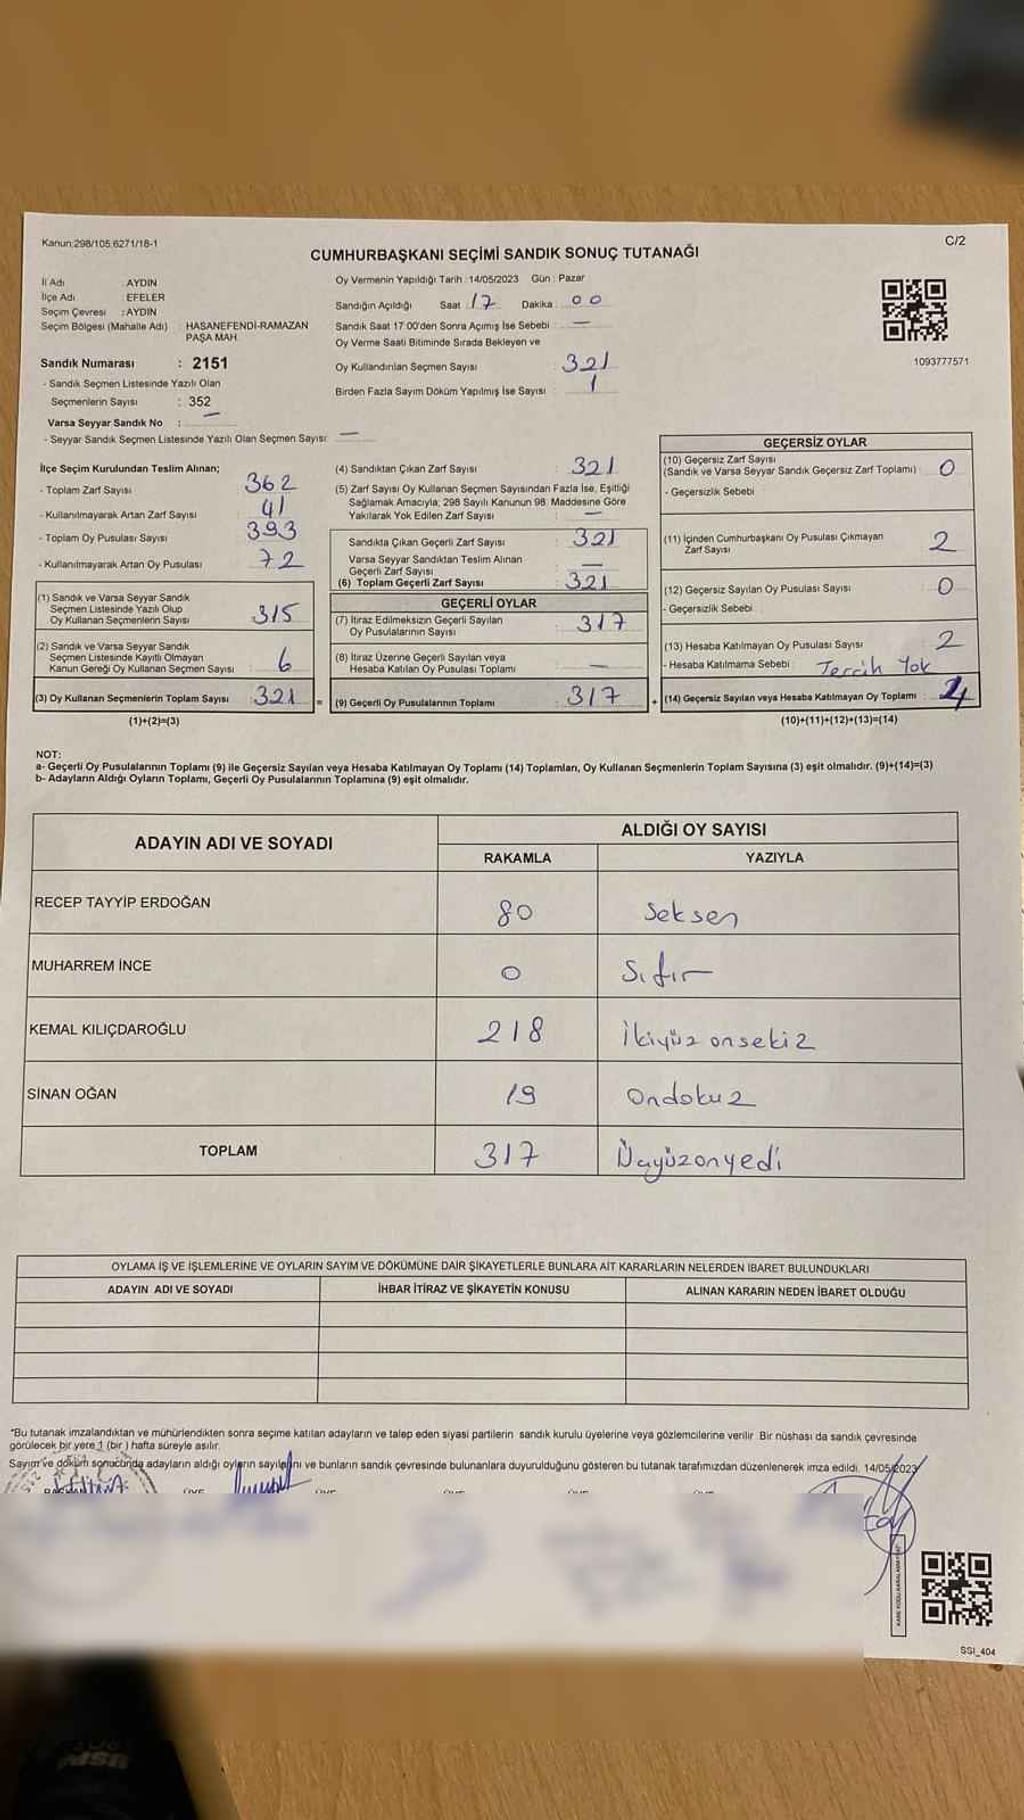 Kanun:298/105,6271/18-1
C/2
CUMHURBAŞKANI SEÇİMİ SANDIK SONUÇ TUTANAĞI
İl Adı : AYDIN
İlçe Adı : EFELER
Seçim Çevresi : AYDIN
Seçim Bölgesi (Mahalle Adı) HASANEFENDİ-RAMAZAN
PAŞA MAH.
Sandık Numarası : 2151
- Sandık Seçmen Listesinde Yazılı Olan
Seçmenlerin Sayısı : 352
Varsa Seyyar Sandık No : —
- Seyyar Sandık Seçmen Listesinde Yazılı Olan Seçmen Sayısı: —
Oy Vermenin Yapıldığı Tarih : 14/05/2023 Gün : Pazar
Sandığın Açıldığı Saat : 17 Dakika : 00
Sandık Saat 17:00'den Sonra Açımış İse Sebebi : —
Oy Verme Saati Bitiminde Sırada Bekleyen ve
Oy Kullandırılan Seçmen Sayısı : 321
Birden Fazla Sayım Döküm Yapılmış İse Sayısı : 1
1093777571
İlçe Seçim Kurulundan Teslim Alınan;
- Toplam Zarf Sayısı 362
- Kullanılmayarak Artan Zarf Sayısı 41
- Toplam Oy Pusulası Sayısı 393
- Kullanılmayarak Artan Oy Pusulası 72
(1) Sandık ve Varsa Seyyar Sandık
Seçmen Listesinde Yazılı Olup
Oy Kullanan Seçmenlerin Sayısı 315
(2) Sandık ve Varsa Seyyar Sandık
Seçmen Listesinde Kayıtlı Olmayan
Kanun Gereği Oy Kullanan Seçmen Sayısı 6
(3) Oy Kullanan Seçmenlerin Toplam Sayısı : 321 =
(1)+(2)=(3)
(4) Sandıktan Çıkan Zarf Sayısı : 321
(5) Zarf Sayısı Oy Kullanan Seçmen Sayısından Fazla İse, Eşitliği
Sağlamak Amacıyla; 298 Sayılı Kanunun 98. Maddesine Göre
Yakılarak Yok Edilen Zarf Sayısı : —
Sandıkta Çıkan Geçerli Zarf Sayısı : 321
Varsa Seyyar Sandıktan Teslim Alınan
Geçerli Zarf Sayısı : —
(6) Toplam Geçerli Zarf Sayısı : 321
GEÇERLİ OYLAR
(7) İtiraz Edilmeksizin Geçerli Sayılan
Oy Pusulalarının Sayısı : 317
(8) İtiraz Üzerine Geçerli Sayılan veya
Hesaba Katılan Oy Pusulası Toplamı : —
(9) Geçerli Oy Pusulalarının Toplamı : 317 +
GEÇERSİZ OYLAR
(10) Geçersiz Zarf Sayısı
(Sandık ve Varsa Seyyar Sandık Geçersiz Zarf Toplamı) : 0
- Geçersizlik Sebebi
(11) İçinden Cumhurbaşkanı Oy Pusulası Çıkmayan
Zarf Sayısı 2
(12) Geçersiz Sayılan Oy Pusulası Sayısı : 0
- Geçersizlik Sebebi
(13) Hesaba Katılmayan Oy Pusulası Sayısı : 2
- Hesaba Katılmama Sebebi : Tercih Yok
(14) Geçersiz Sayılan veya Hesaba Katılmayan Oy Toplamı : 4
(10)+(11)+(12)+(13)=(14)
NOT:
a- Geçerli Oy Pusulalarının Toplamı (9) ile Geçersiz Sayılan veya Hesaba Katılmayan Oy Toplamı (14) Toplamları, Oy Kullanan Seçmenlerin Toplam Sayısına (3) eşit olmalıdır. (9)+(14)=(3)
b- Adayların Aldığı Oyların Toplamı, Geçerli Oy Pusulalarının Toplamına (9) eşit olmalıdır.
ADAYIN ADI VE SOYADI ALDIĞI OY SAYISI
RAKAMLA YAZIYLA
RECEP TAYYİP ERDOĞAN 80 Seksen
MUHARREM İNCE 0 Sıfır
KEMAL KILIÇDAROĞLU 218 İkiyüz onsekiz
SİNAN OĞAN 19 Ondokuz
TOPLAM 317 Üçyüzonyedi
OYLAMA İŞ VE İŞLEMLERİNE VE OYLARIN SAYIM VE DÖKÜMÜNE DAİR ŞİKAYETLERLE BUNLARA AİT KARARLARIN NELERDEN İBARET BULUNDUKLARI
ADAYIN ADI VE SOYADI İHBAR İTİRAZ VE ŞİKAYETİN KONUSU ALINAN KARARIN NEDEN İBARET OLDUĞU
*Bu tutanak imzalandıktan ve mühürlendikten sonra seçime katılan adayların ve talep eden siyasi partilerin sandık kurulu üyelerine veya gözlemcilerine verilir. Bir nüshası da sandık çevresinde
görülecek bir yere 1 (bir ) hafta süreyle asılır.
Sayım ve döküm sonucunda adayların aldığı oyların sayılarını ve bunların sandık çevresinde bulunanlara duyurulduğunu gösteren bu tutanak tarafımızdan düzenlenerek imza edildi. 14/05/2023
SSI_404